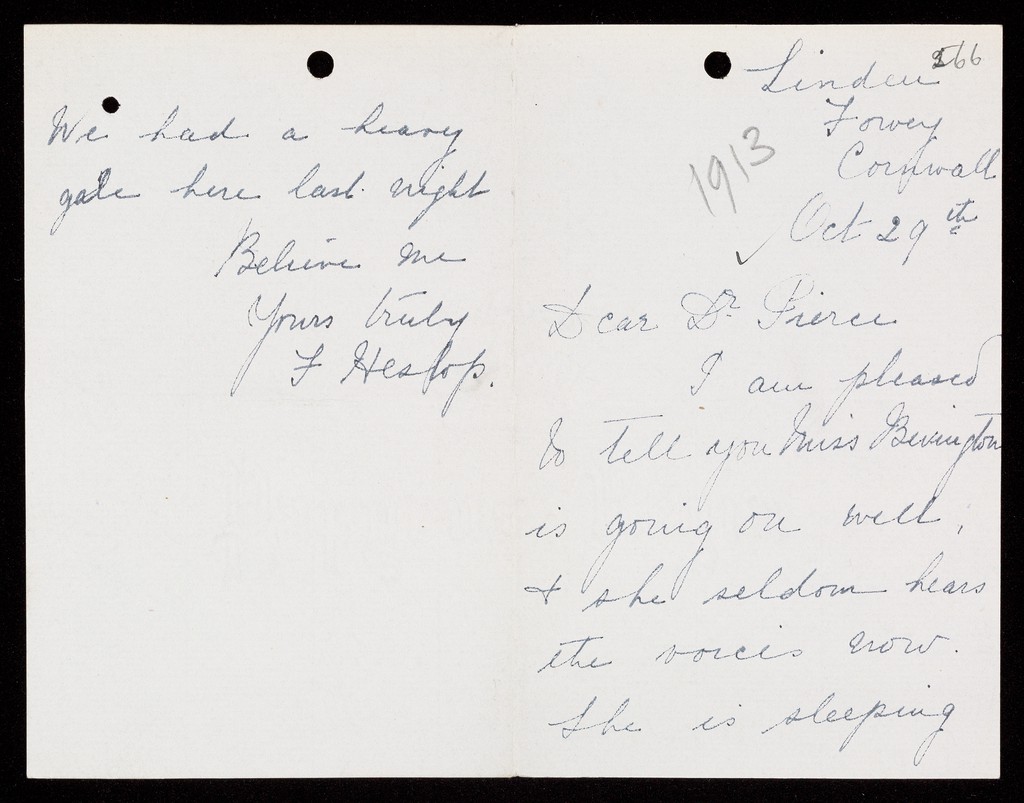 We had a heavy
gale here last night
Believe me
Yours truly
F Heslop.
266
Linden
Fowey
Cornwall
1913
Oct 29th
Dear Dr. Pierce
I am pleased
to tell you Miss Bevington
is going on well,
& she seldom hears
the voices now.
She is sleeping